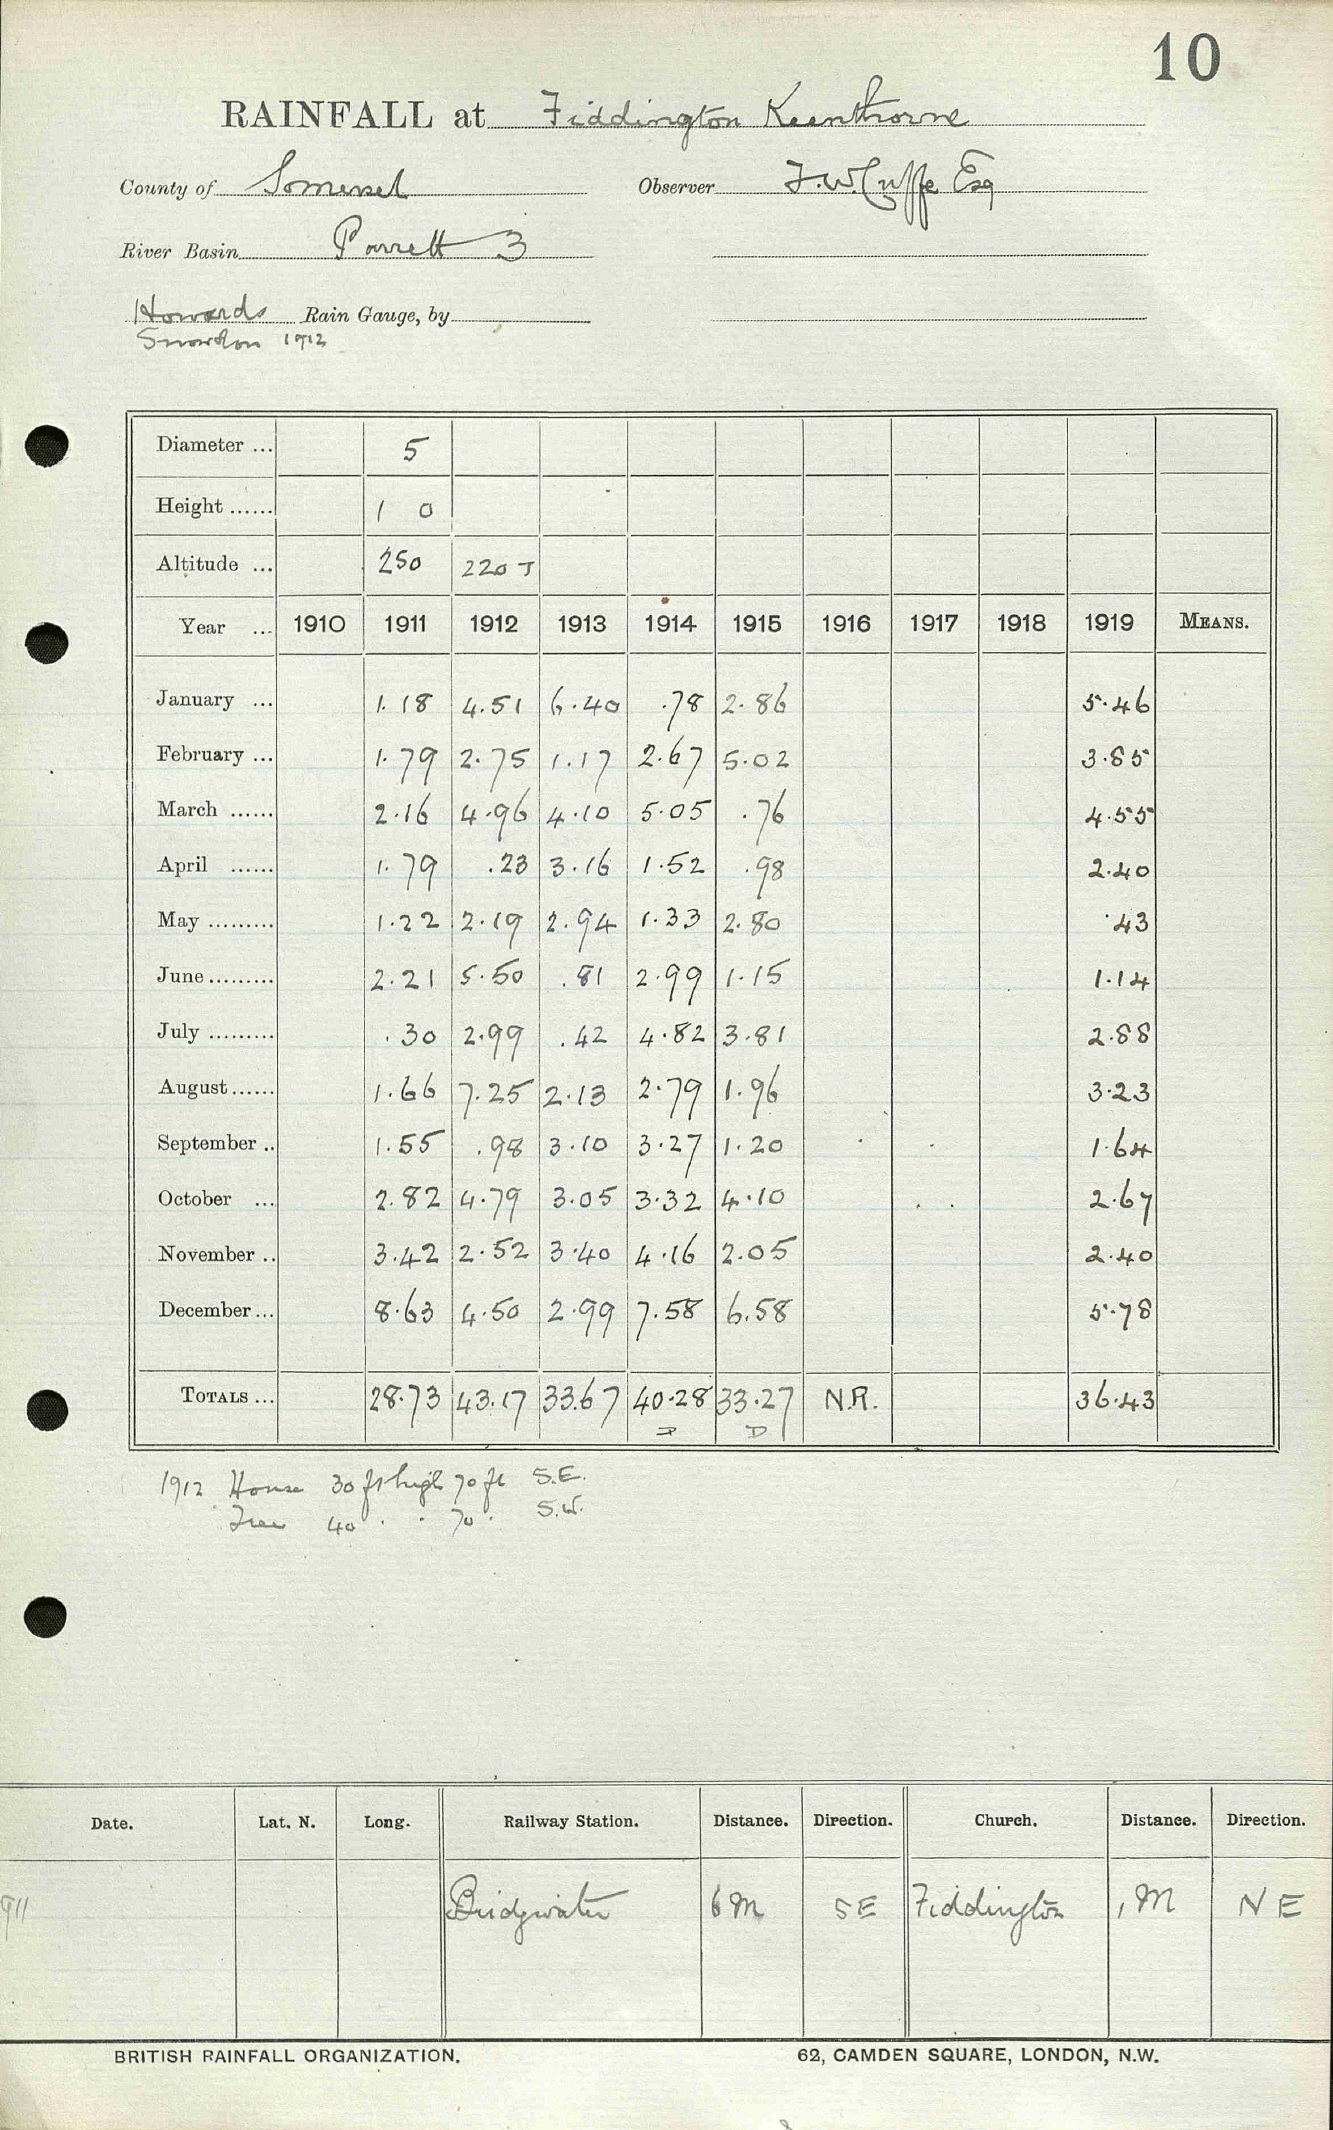 10
RAINFALL at Fiddington Keenthorne
County of Somerset Observer F.W. Cuffe Esq
River Basin Parrett 3
Howards Rain Gauge, by
Snowdon 1912
Diameter ... 5
Height ...... 1 0
Altitude ... 250 220 T
Year ... 1910 1911 1912 1913 1914 1915 1916 1917 1918 1919 MEANS.
January ... 1.18 4.51 6.40 .78 2.86 5.46
February ... 1.79 2.75 1.17 2.67 5.02 3.85
March ...... 2.16 4.96 4.10 5.05 .76 4.55
April ...... 1.79 .23 3.16 1.52 .98 2.40
May ......... 1.22 2.19 2.94 1.33 2.80 .43
June ......... 2.21 5.50 .81 2.99 1.15 1.14
July ......... .30 2.99 .42 4.82 3.81 2.88
August ...... 1.66 7.25 2.13 2.79 1.96 3.23
September .. 1.55 .98 3.10 3.27 1.20 1.64
October ... 2.82 4.79 3.05 3.32 4.10 2.67
November .. 3.42 2.52 3.40 4.16 2.05 2.40
December ... 8.63 4.50 2.99 7.58 6.58 5.78
TOTALS ... 28.73 43.17 33.67 40.28 33.27 N.R. 36.43
D D
1912 House 30 ft high 70 ft S.E.
Tree 40 " " 70 " S.W.
Date. Lat. N. Long. Railway Station. Distance. Direction. Church. Distance. Direction.
911 Bridgwater 6 M SE Fiddington 1 M NE
BRITISH RAINFALL ORGANIZATION. 62, CAMDEN SQUARE, LONDON, N.W.